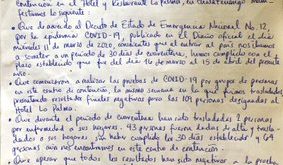 contención en el Hotel y Restaurante La Palma, en Chalatenango mani-
festamos lo siguiente:
• Que de acuerdo al Decreto de Estado de Emergencia Nacional No. 12,
por la epidemia COVID-19, publicado en el Diario oficial el día
miércoles 11 de marzo de 2020,          que al entrar al país nos íbamos
a someter a un período de 30 días de cuarentena, hemos cumplido con el
plazo establecido que fue del día 16 de marzo al 15 de abril del presente
año.
• Que comenzaron a realizar las pruebas de COVID-19 por grupos de personas
en este centro de contención, la misma semana en la que fuimos trasladados,
              resultados finales negativos para las 109 personas designadas al
Hotel La Palma.
• Que durante el período de cuarentena han sido trasladadas 2 personas
por enfermedad a sus hogares, 43 personas fueron dadas de alta y trasla-
dados a sus hogares, sin haber cumplido los 30 días establecidos y 64
personas aún nos encontramos en este centro de contención.
• Que a pesar que todos los resultados han sido negativos